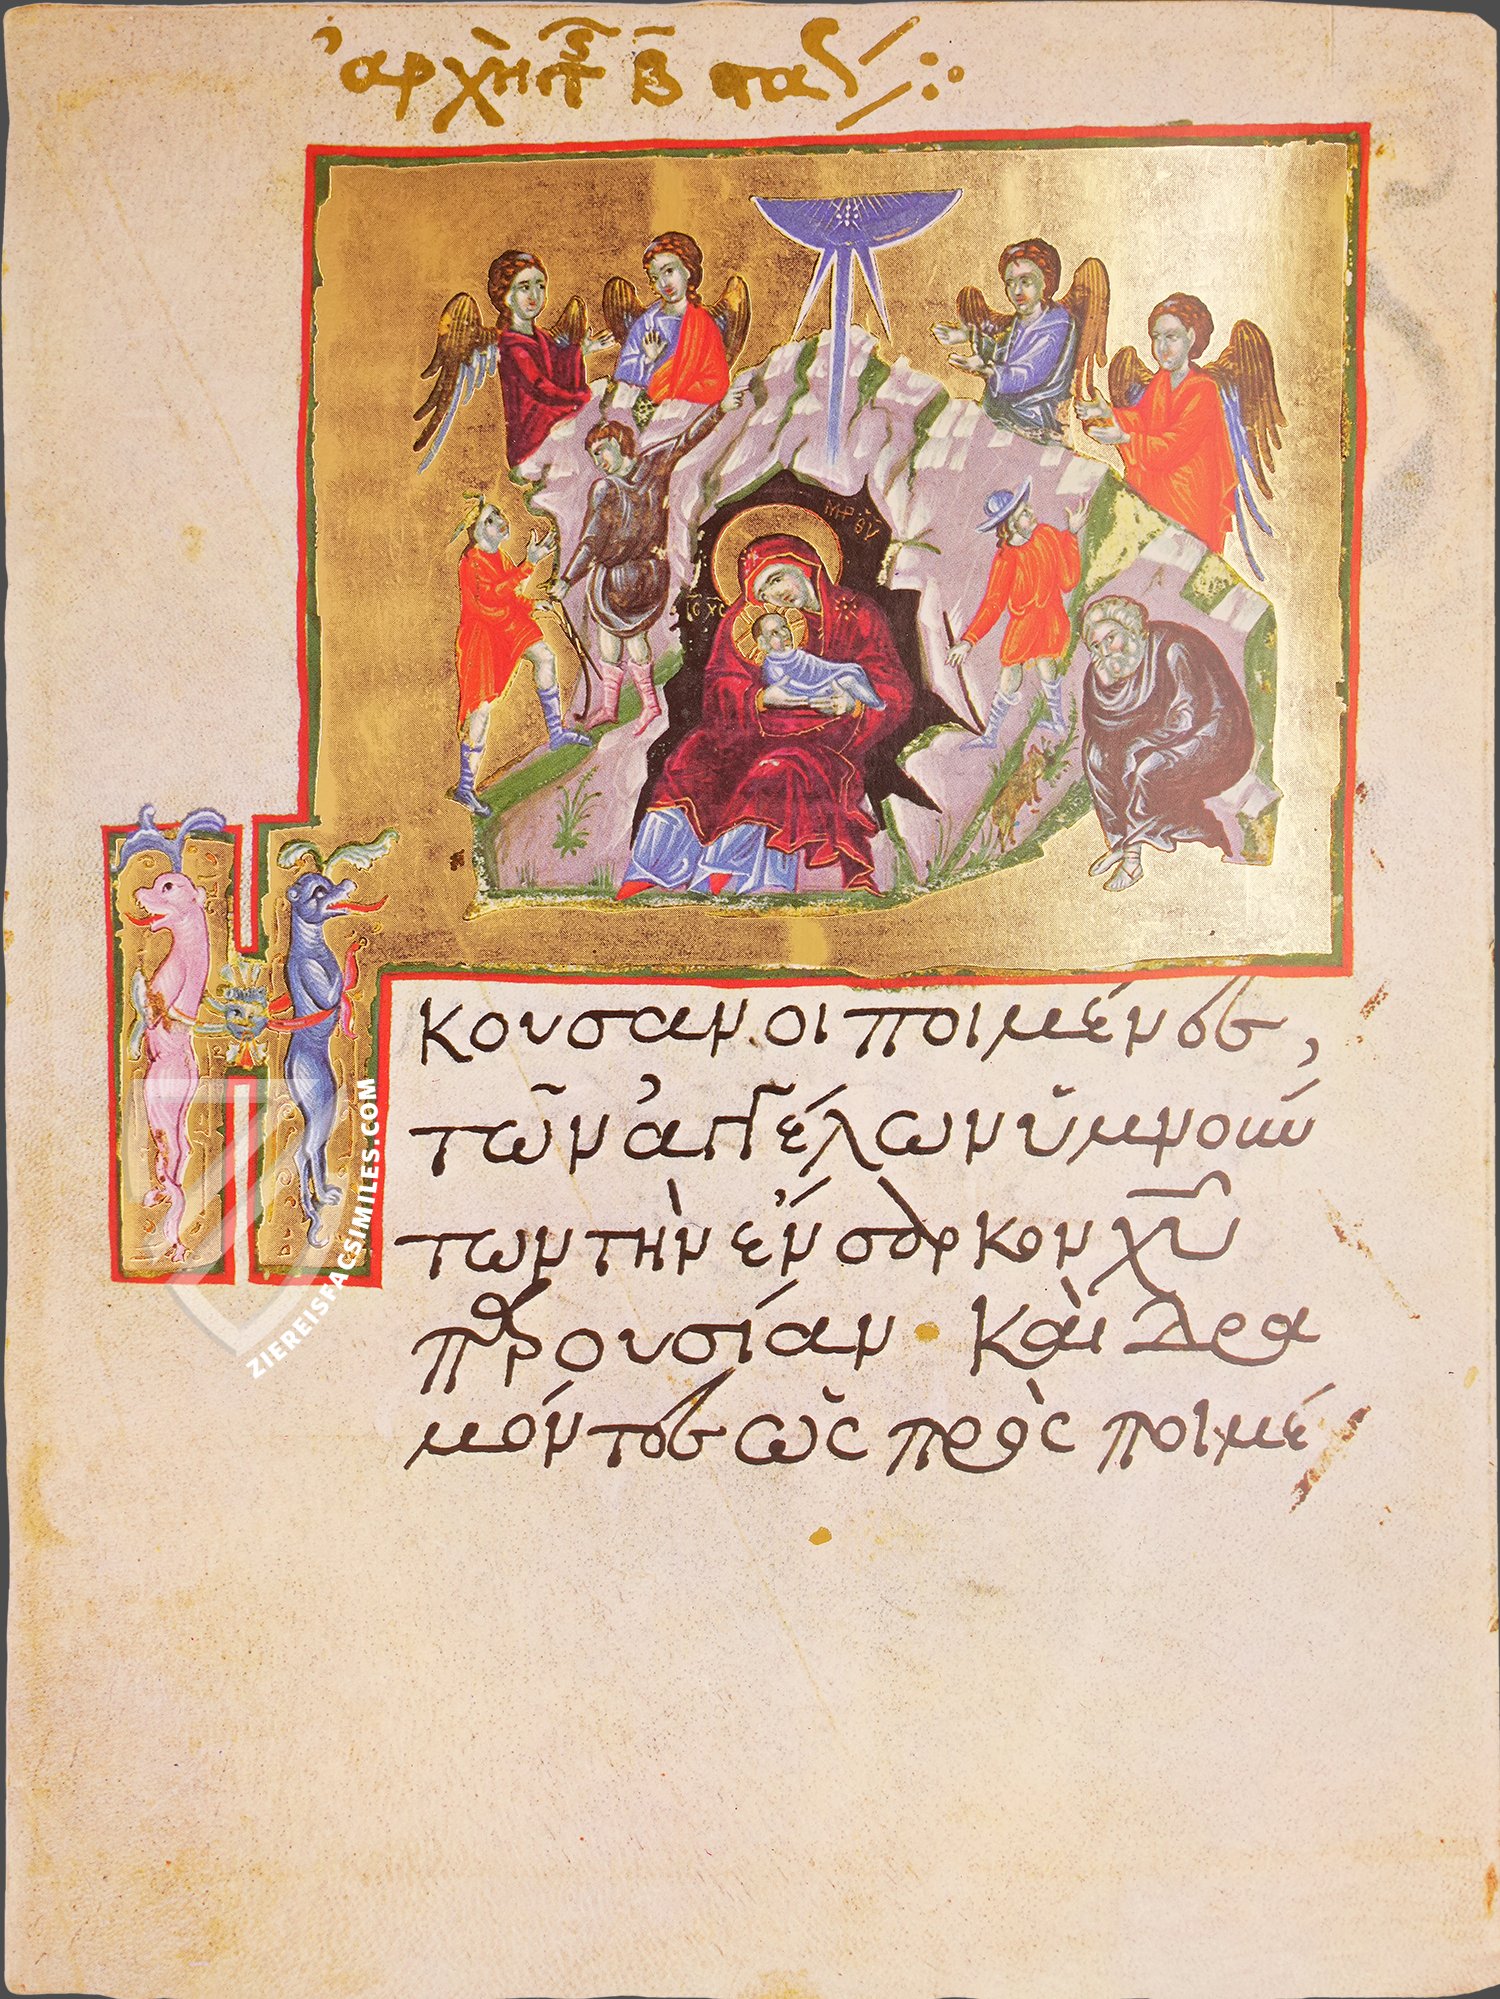 ἀρχὴ τῆς Β στάσ
ΜΡ ΘΥ
ΙC ΧC
Η
κουσαν οἱ ποιμένες,
τῶν ἀγγέλων ὑμνούν
των τὴν ἔνσαρκον χυ
παρουσίαν · καὶ δρα
μόντες ὡς πρὸς ποιμέ
ZIEREISFACSIMILES.COM